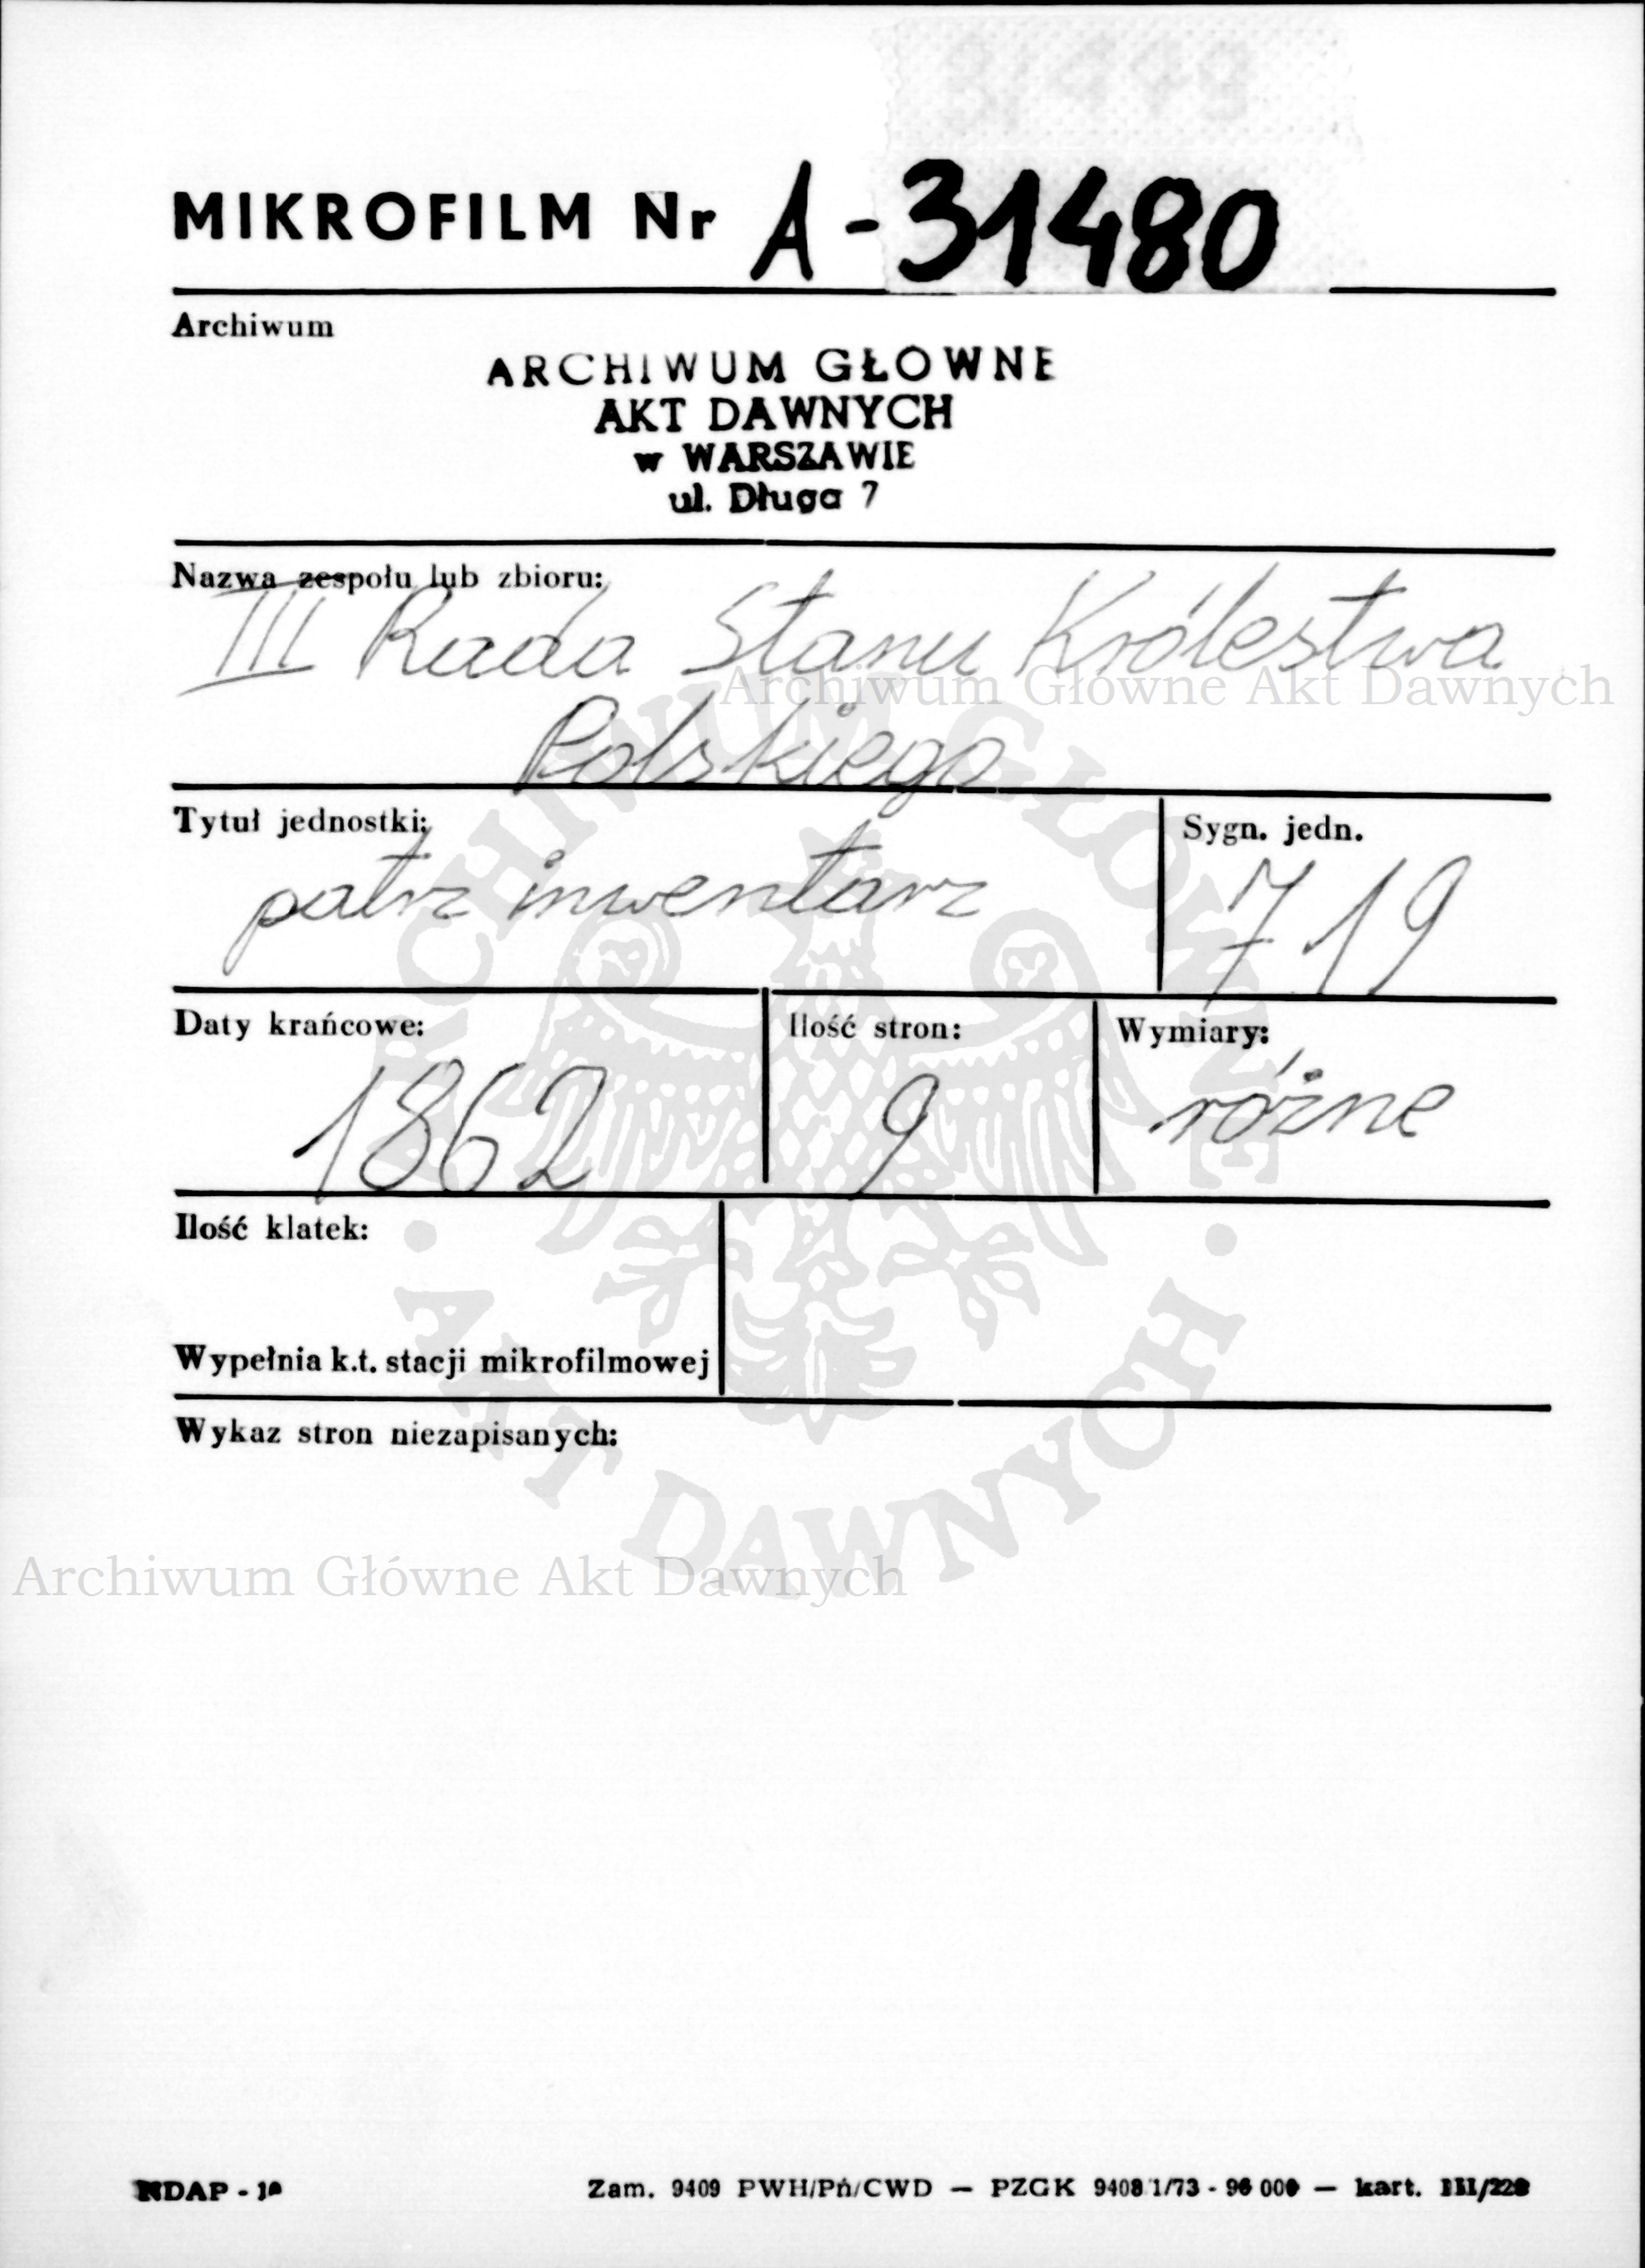 MIKROFILM Nr A-31480
Archiwum
ARCHIWUM GŁOWNE
AKT DAWNYCH
w WARSZAWIE
ul. Długa 7
Nazwa zespołu lub zbioru:
III Rada Stanu Królestwa
Archiwum Główne Akt Dawnych
Polskiego
Tytuł jednostki:
Sygn. jedn.
patrz inwentarz
719
Daty krańcowe:
Ilość stron:
Wymiary:
1862
9
różne
Ilość klatek:
Wypełnia k.t. stacji mikrofilmowej
Wykaz stron niezapisanych:
ARCHIWUM GŁÓWNE
AKT DAWNYCH
Archiwum Główne Akt Dawnych
NDAP -
Zam. 9409 PWH/Pń/CWD — PZGK 9408 1/73 - 96 000 — kart. III/220